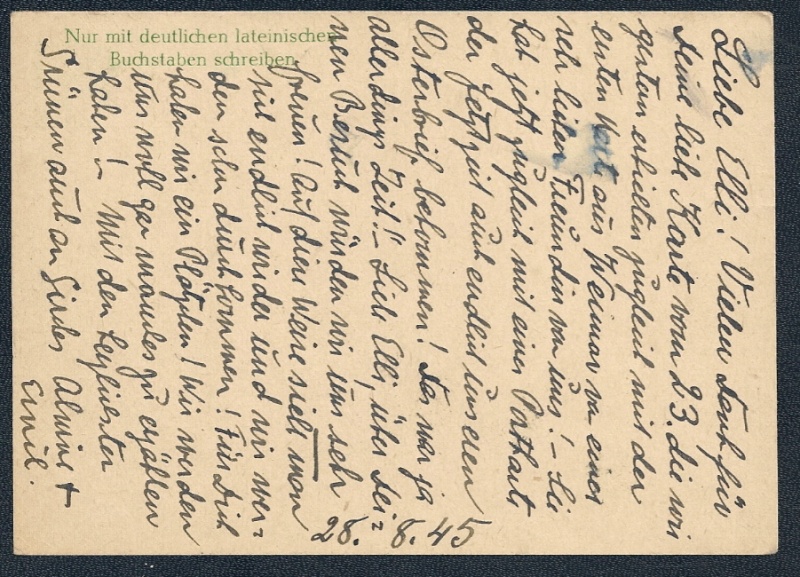 Nur mit deutlichen lateinischen
Buchstaben schreiben
28. 8. 45
Liebe Elli! Vielen Dank für
deine liebe Karte vom 23. die wir
gestern erhielten zugleich mit der
ersten Karte aus Weimar von einer
sehr lieben Freundin von uns! – Sie
hat jetzt zugleich mit einer Postkarte
der Jetztzeit auch endlich unseren
Osterbrief bekommen! Das war ja
allerdings Zeit!! – Liebe Elli, über Dei=
nen Besuch würden wir uns sehr
freuen! Auf diese Weise sieht man
sich endlich wieder und wir wer=
den schon durchkommen! Für Dich
haben wir ein Plätzchen! Wir werden
uns wohl gar manches zu erzählen
haben! – Mit den herzlichsten
Grüssen auch an Gerdes Alwine +
Emil.